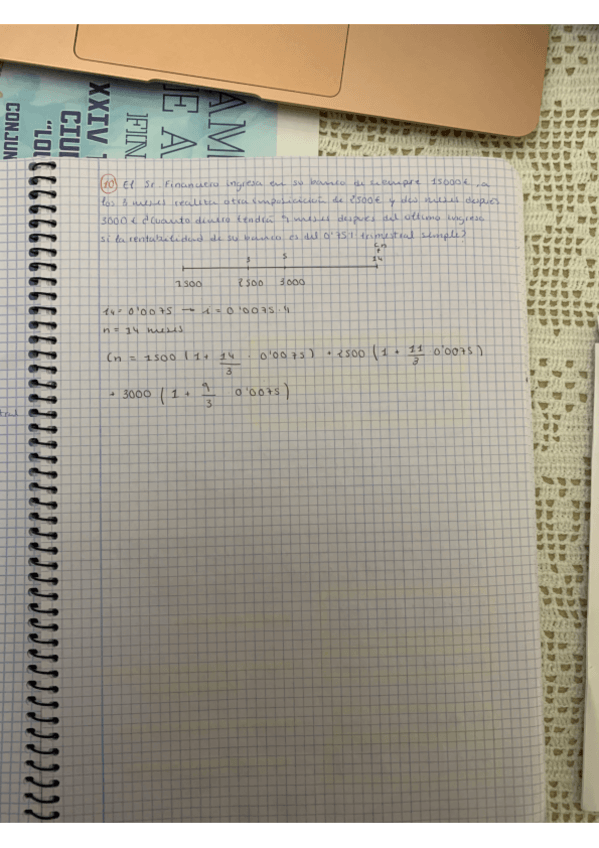 AMI
E A
FIN
XXIV
CIU
"LO
CONJUN
10) El Sr Financiero ingresa en su banco de siempre 15000€, a
los 3 meses realiza otra imposición de 2500€ y dos meses después
3000€ ¿Cuanto dinero tendrá 9 meses después del último ingreso
si la rentabilidad de su banco es del 0'75% trimestral simple?
3 5 Cn
14
1500 2500 3000
i4= 0'0075 → i = 0'0075·4
n = 14 meses
Cn = 1500 (1+ 14/3 · 0'0075) + 2500 (1 + 11/3 0'0075)
+ 3000 (1 + 9/3 0'0075)
tral